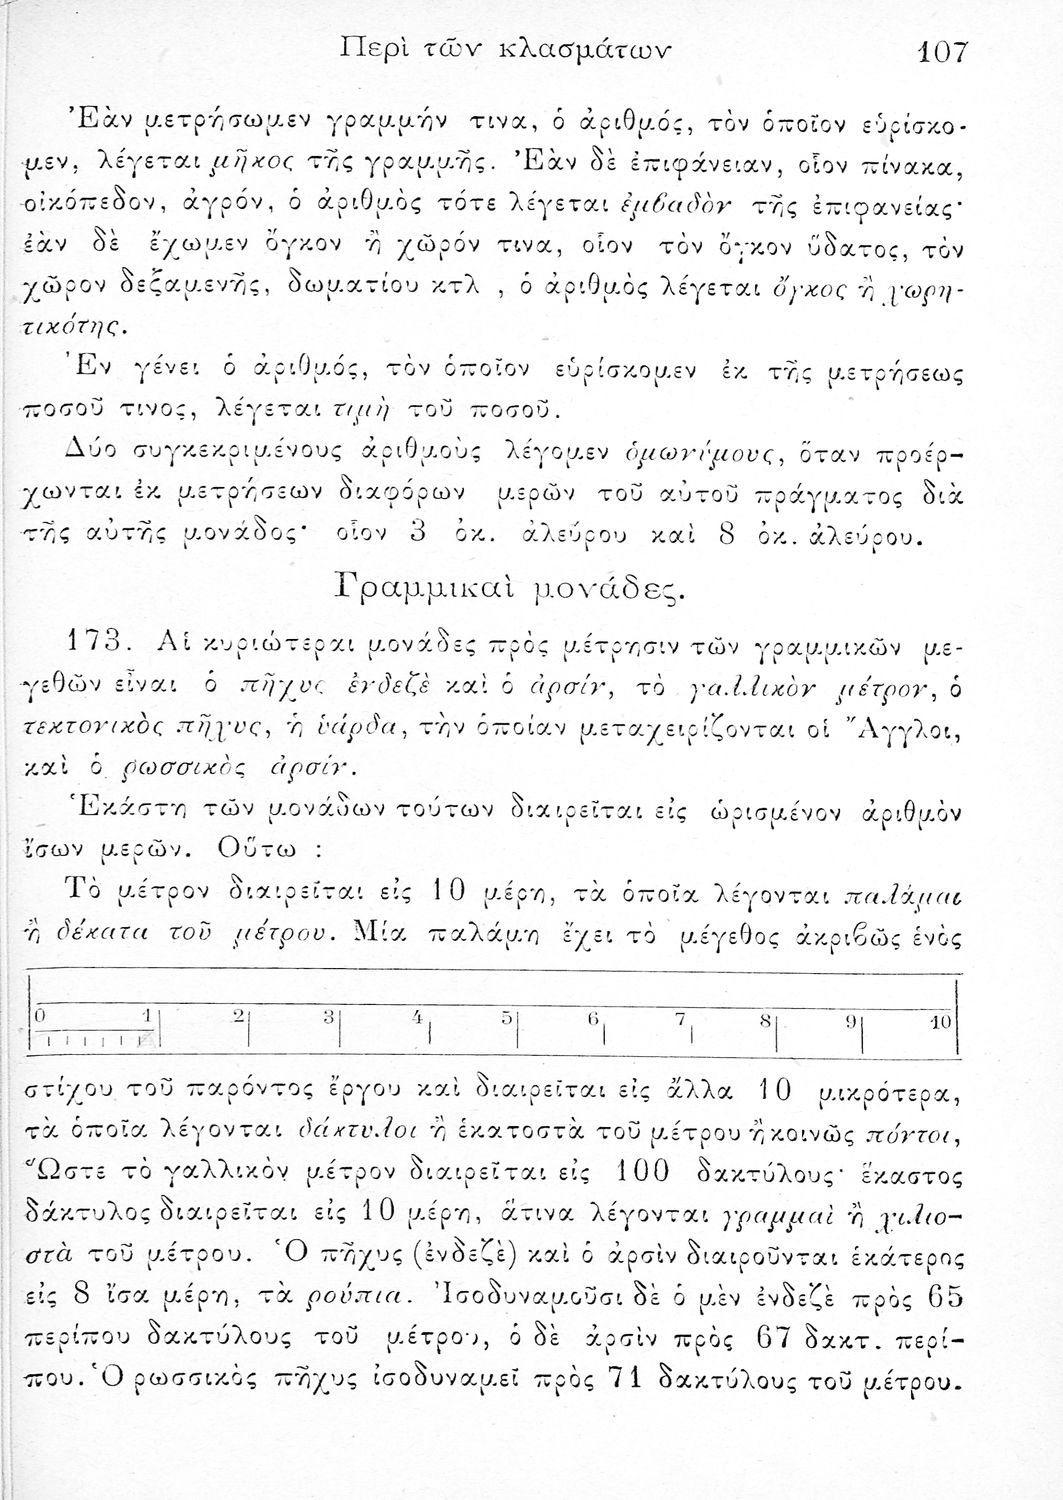 Περὶ τῶν κλασμάτων 107
Ἐὰν μετρήσωμεν γραμμήν τινα, ὁ ἀριθμός, τὸν ὁποῖον εὑρίσκο-
μεν, λέγεται μῆκος τῆς γραμμῆς. Ἐὰν δὲ ἐπιφάνειαν, οἷον πίνακα,
οἰκόπεδον, ἀγρόν, ὁ ἀριθμὸς τότε λέγεται ἐμβαδὸν τῆς ἐπιφανείας·
ἐὰν δὲ ἔχωμεν ὄγκον ἢ χῶρόν τινα, οἷον τὸν ὄγκον ὕδατος, τὸν
χῶρον δεξαμενῆς, δωματίου κτλ , ὁ ἀριθμὸς λέγεται ὄγκος ἢ χωρη-
τικότης.
Ἐν γένει ὁ ἀριθμός, τὸν ὁποῖον εὑρίσκομεν ἐκ τῆς μετρήσεως
ποσοῦ τινος, λέγεται τιμὴ τοῦ ποσοῦ.
Δύο συγκεκριμένους ἀριθμοὺς λέγομεν ὁμωνύμους, ὅταν προέρ-
χωνται ἐκ μετρήσεων διαφόρων μερῶν τοῦ αὐτοῦ πράγματος διὰ
τῆς αὐτῆς μονάδος· οἷον 3 ὀκ. ἀλεύρου καὶ 8 ὀκ. ἀλεύρου.
Γραμμικαὶ μονάδες.
173. Αἱ κυριώτεραι μονάδες πρὸς μέτρησιν τῶν γραμμικῶν με-
γεθῶν εἶναι ὁ πῆχυς ἐνδεζὲ καὶ ὁ ἀρσίν, τὸ γαλλικὸν μέτρον, ὁ
τεκτονικὸς πῆχυς, ἡ ὑάρδα, τὴν ὁποίαν μεταχειρίζονται οἱ Ἄγγλοι,
καὶ ὁ ρωσσικὸς ἀρσίν.
Ἑκάστη τῶν μονάδων τούτων διαιρεῖται εἰς ὡρισμένον ἀριθμὸν
ἴσων μερῶν. Οὕτω :
Τὸ μέτρον διαιρεῖται εἰς 10 μέρη, τὰ ὁποῖα λέγονται παλάμαι
ἢ δέκατα τοῦ μέτρου. Μία παλάμη ἔχει τὸ μέγεθος ἀκριβῶς ἑνὸς
0 1 2 3 4 5 6 7 8 9 10
στίχου τοῦ παρόντος ἔργου καὶ διαιρεῖται εἰς ἄλλα 10 μικρότερα,
τὰ ὁποῖα λέγονται δάκτυλοι ἢ ἑκατοστὰ τοῦ μέτρου ἢ κοινῶς πόντοι,
Ὥστε τὸ γαλλικὸν μέτρον διαιρεῖται εἰς 100 δακτύλους· ἕκαστος
δάκτυλος διαιρεῖται εἰς 10 μέρη, ἅτινα λέγονται γραμμαὶ ἢ χιλιο-
στὰ τοῦ μέτρου. Ὁ πῆχυς (ἐνδεζὲ) καὶ ὁ ἀρσὶν διαιροῦνται ἑκάτερος
εἰς 8 ἴσα μέρη, τὰ ρούπια. Ἰσοδυναμοῦσι δὲ ὁ μὲν ἐνδεζὲ πρὸς 65
περίπου δακτύλους τοῦ μέτρου, ὁ δὲ ἀρσὶν πρὸς 67 δακτ. περί-
που. Ὁ ρωσσικὸς πῆχυς ἰσοδυναμεῖ πρὸς 71 δακτύλους τοῦ μέτρου.